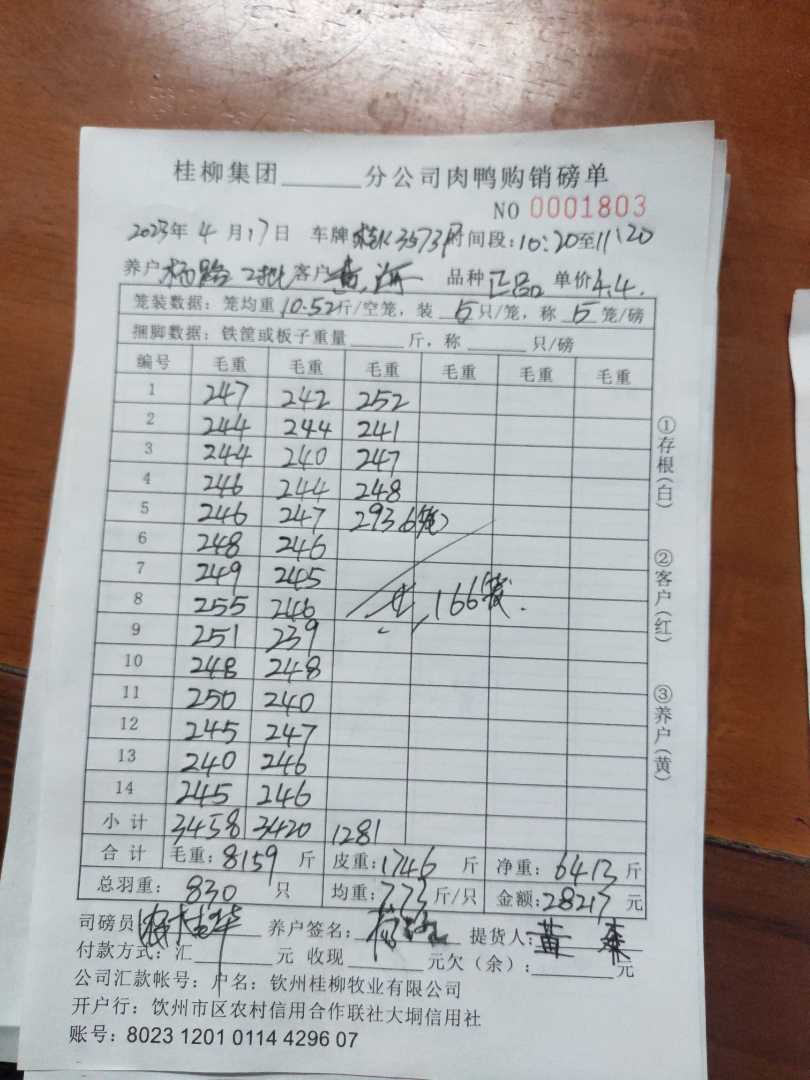 桂柳集团______分公司肉鸭购销磅单
NO 0001803
2023年 4 月 17日 车牌 桂K3573 时间段:10:20至11:20
养户 杨 2批 客户 黄 品种 正品 单价 4.4.
笼装数据：笼均重 10.52斤/空笼，装 5 只/笼，称 5 笼/磅
捆脚数据：铁筐或板子重量______斤，称______只/磅
编号 毛重 毛重 毛重 毛重 毛重 毛重
1 247 242 252
2 244 244 241
3 244 240 247
4 246 244 248
5 246 247 293 6笼
6 248 246
7 249 245
8 255 246 166笼.
9 251 239
10 248 248
11 250 240
12 245 247
13 240 246
14 245 246
小计 3458 3420 1281
合计 毛重：8159 斤 皮重：1746 斤 净重：6413 斤
总羽重： 830 只 均重：7.73 斤/只 金额：28217 元
司磅员 养户签名： 杨 提货人： 黄
付款方式：汇______元 收现______元欠（余）：______元
公司汇款帐号：户名：钦州桂柳牧业有限公司
开户行：饮州市区农村信用合作联社大垌信用社
账号：8023 1201 0114 4296 07
①存根(白)
②客户(红)
③养户(黄)